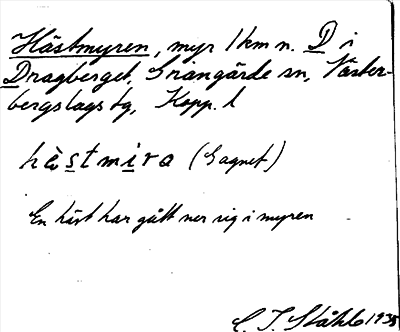 Hästmyren, myr 1 km n. D i
Dragberget, Grangärde sn, Väster-
bergslags tg, Kopp. l
hèstmira (Sagnet)
En häst har gått ner sig i myren
C. I. Ståhle 1935